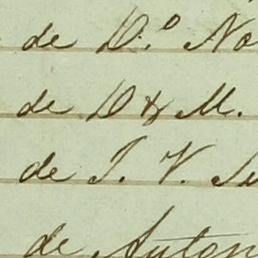 de D.º No
de D & M.
de J. V.
de Anton